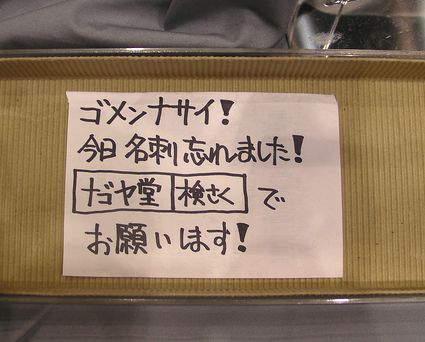 ゴメンナサイ!
今日名刺忘れました!
ナゴヤ堂 検さく で
お願いします!